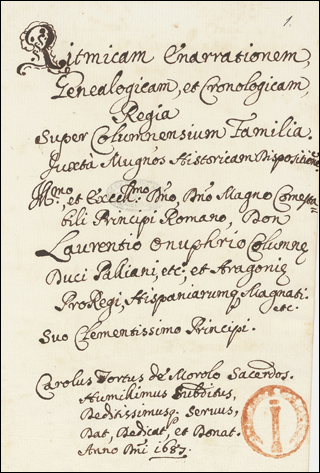 1.
Ritmicam Enarrationem,
Genealogicam, et Cronologicam,
Regia
Super Columnensium Familia.
Juxtà Mugnos Historicam Dispositione
Illmo, et Excellmo Dno, Dno Magno Comesta=
bili Principi Romano, Don
Laurentio Onuphrio Columnę
Duci Palliani, etc; et Aragonię
ProRegi, Hispaniarumq Magnati.
etc.
Suo Clementissimo Principi.
Carolus Tortus de Morolo Sacerdos.
Humilimus Subditus,
Deditissimusq. Servus,
Dat, Dedicat, et Donat.
Anno Dni 1687.